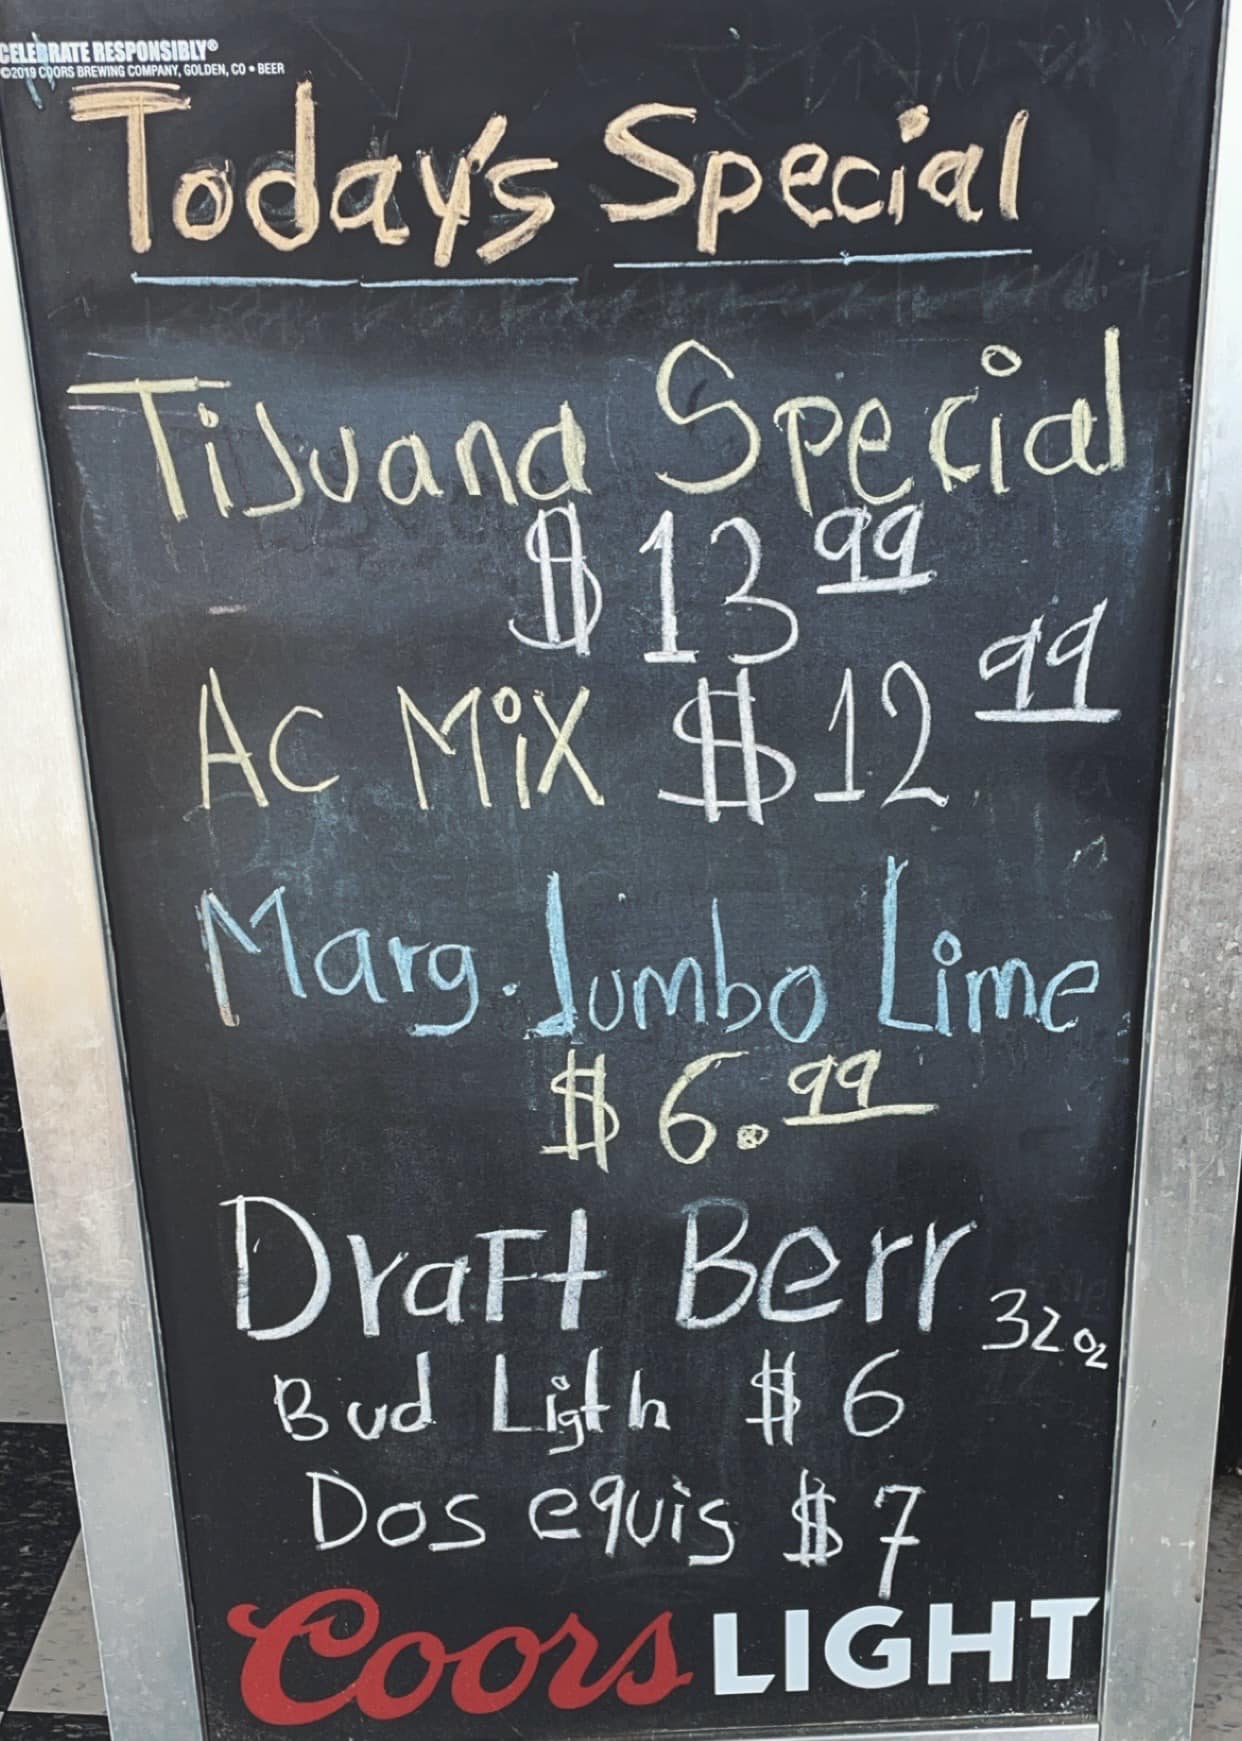 CELEBRATE RESPONSIBLY®
©2019 COORS BREWING COMPANY, GOLDEN, CO • BEER
Today's Special
TiJuana Special
$13 99
AC MiX $12 99
Marg. Jumbo Lime
$6.99
DraFt Berr 32oz
Bud Ligth $6
Dos equis $7
Coors LIGHT